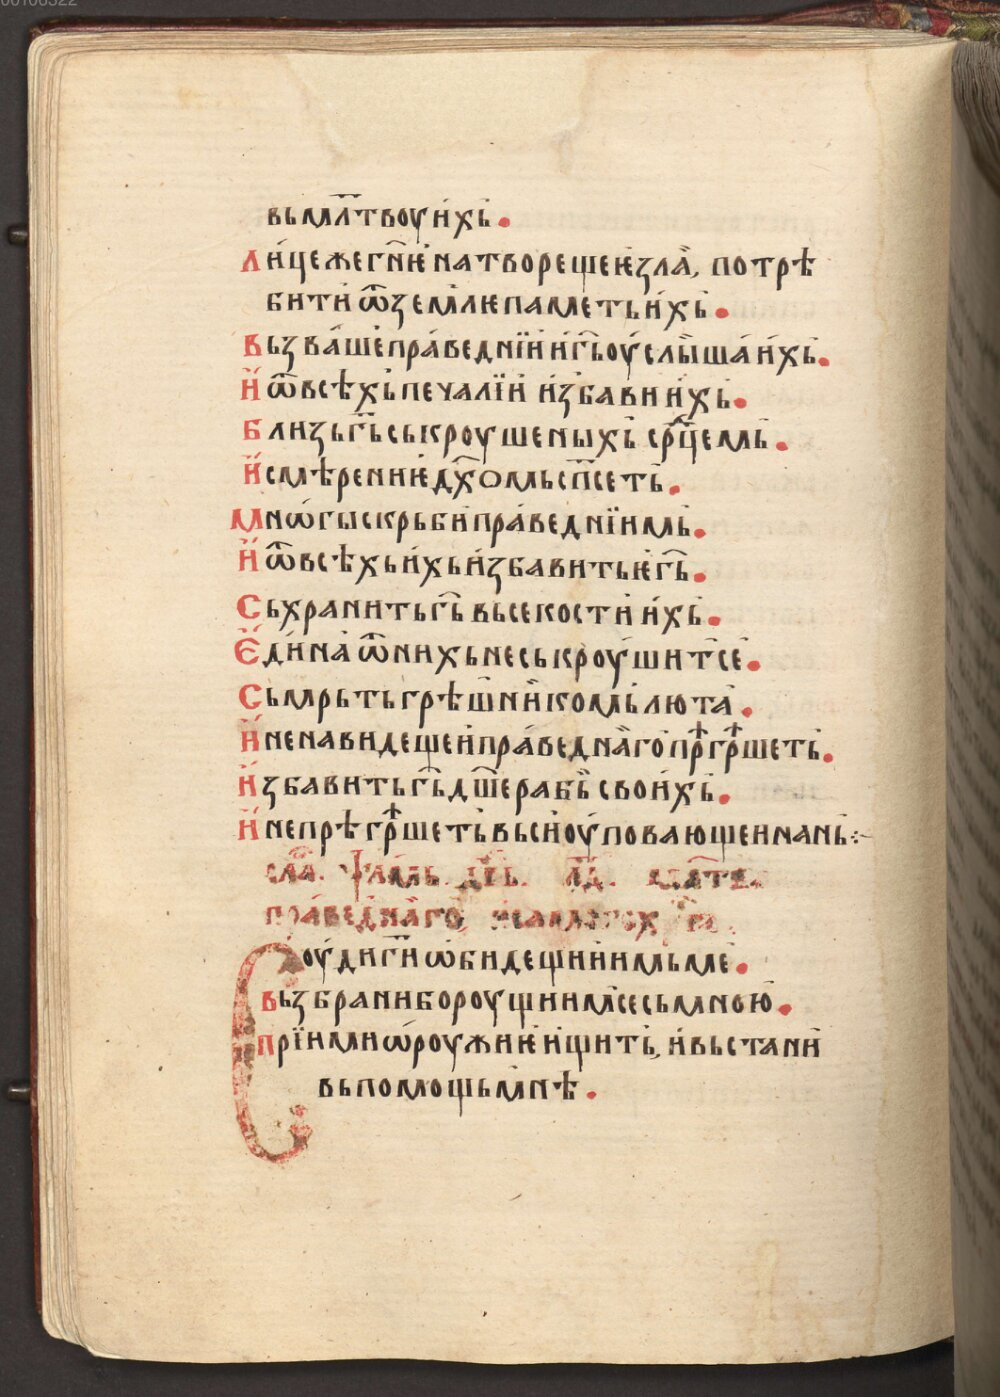 00106322
вьмл҃твоу и҆́хь.
Ли́цежегн҃ѥ натворещеѥзла̀, потрѣ
бити ѿземлѥпаметьи́хь.
Вьзва́шепра́веднїи и҆гь҃оу҆слы́ша и҆́хь.
И҆ѿвсѣхьпечалїи и҆збавии҆́хь.
Близьгь҃ськроушеныхь ср҃цемь.
И҆смѣренниѥдх҃омьсп҃сеть.
Мнѡ́гыскрьбипра́веднїимь.
И҆ѿвсѣхьи҆́хьи҆збавитьѥгь҃.
Сьхранитьгь҃ вьсекости и҆́хь.
Е҆ди́на ѿнихьнеськроу́шитсе.
Сьмрьтьгрѣшникомьлюта̀.
И҆ненавидещеипра́веднагопрѣгрѣшеть.
И҆збавитьгь҃дш҃ерабь свои́хь.
И҆непрѣгрѣшетьвьсиоу҆повающеинань:~
сла. Ѱаⷧмь. дв҃дь. л҃д.
пра́веднаго
Соу́дигн҃и ѡ҆бидещиимьме.
Вьзбранибороущиимсесьмною̀.
Прїимиѡ҆роужиѥищить, и҆вьстани
вьпомощьмнѣ.